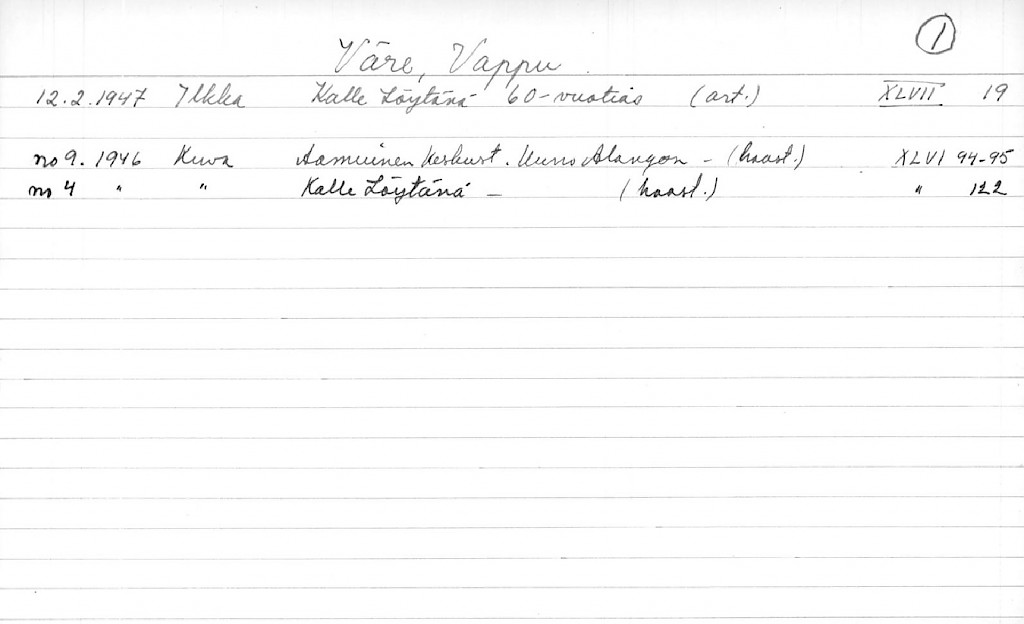 1
Väre, Vappu.
12.2.1947 Ilkka Kalle Löytänä 60-vuotias (art.) XLVII 19
no 9. 1946 Kuva Aamuinen keskust. Uuno Alangon – (haast.) XLVI 94-95
no 4 " " Kalle Löytänä – (haast.) " 122